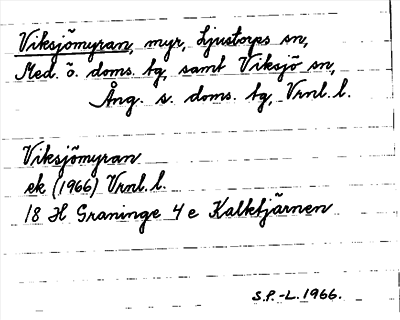 Viksjömyran, myr, Ljustorps sn,
Med. ö. doms. tg, samt Viksjö sn,
Ång. s. doms. tg, Vrnl. l.
Viksjömyran
ek (1966) Vrnl. l.
18 H Graninge 4 e Kalktjärnen
S.P.-L. 1966.